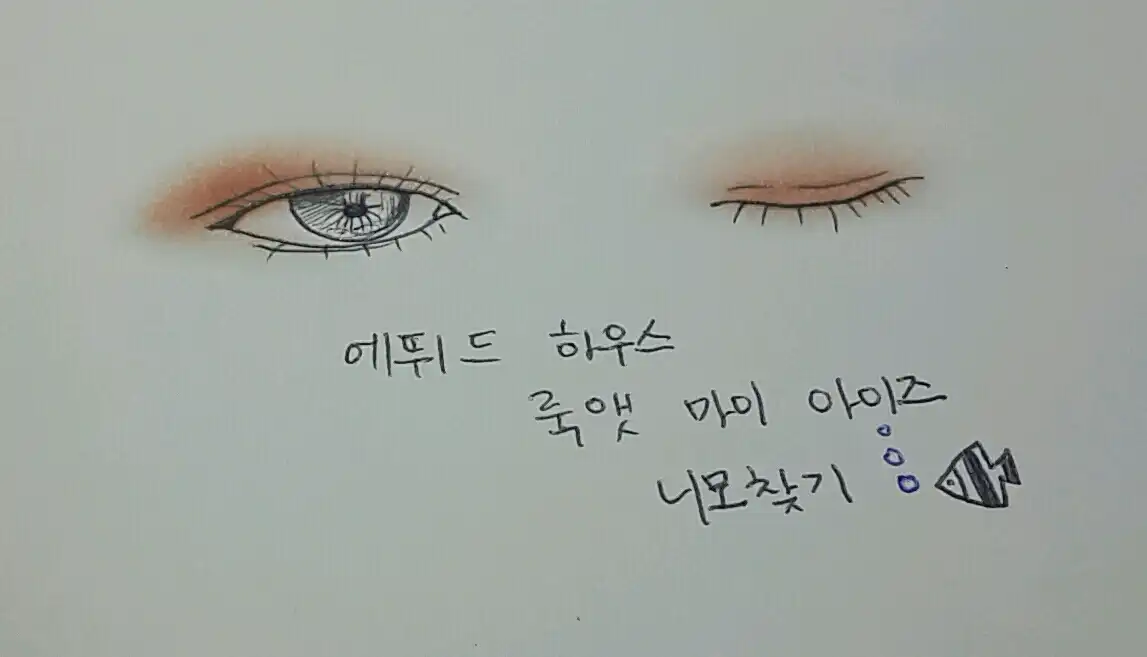 에뛰드 하우스
룩앳 마이 아이즈
니모찾기